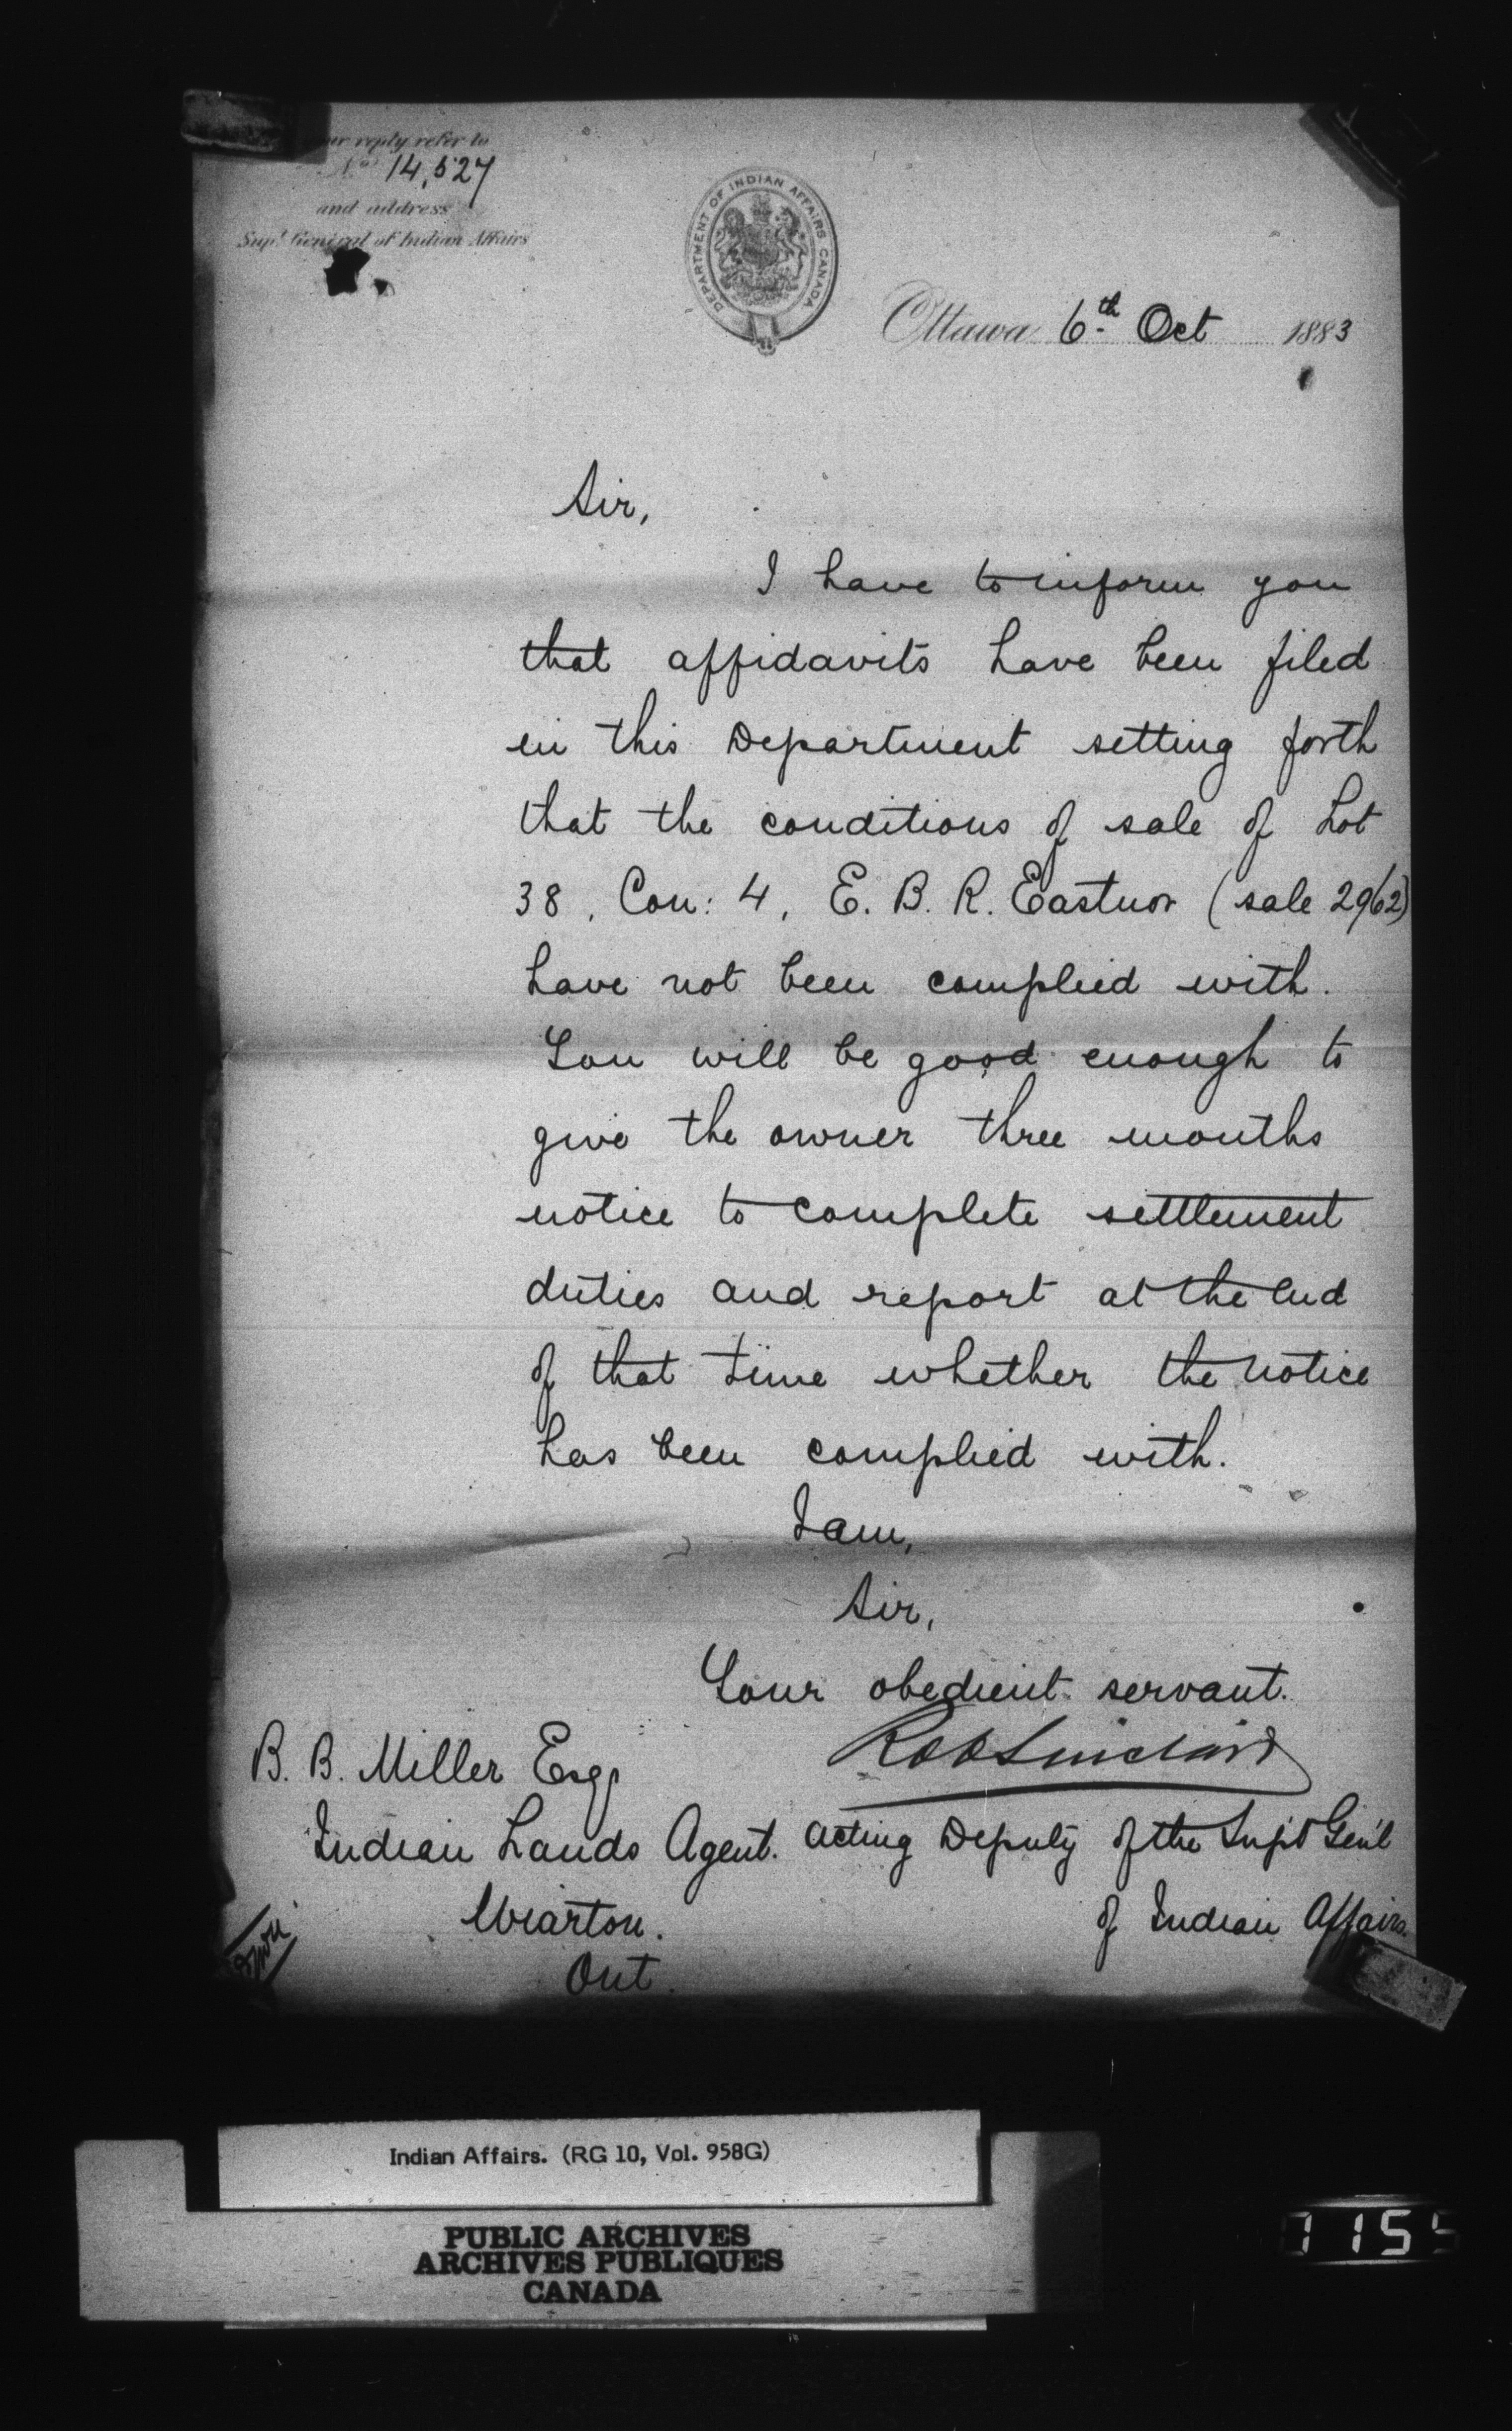 our reply refer to
No. 14,527
and address
Supt. General of Indian Affairs
DEPARTMENT OF INDIAN AFFAIRS CANADA
Ottawa 6th Oct 1883
Sir,
I have to inform you
that affidavits have been filed
in this Department setting forth
that the conditions of sale of Lot
38, Con: 4, E. B. R. Eastnor (sale 2962)
have not been complied with.
You will be good enough to
give the owner three months
notice to complete settlement
duties and report at the end
of that time whether the notice
has been complied with.
I am,
Sir,
Your obedient servant.
Rob Sinclair
B. B. Miller Esqr
Indian Lands Agent.
Wiarton.
Ont.
Acting Deputy of the Supt Gen'l
of Indian Affairs.
Indian Affairs. (RG 10, Vol. 958G)
PUBLIC ARCHIVES
ARCHIVES PUBLIQUES
CANADA
1155